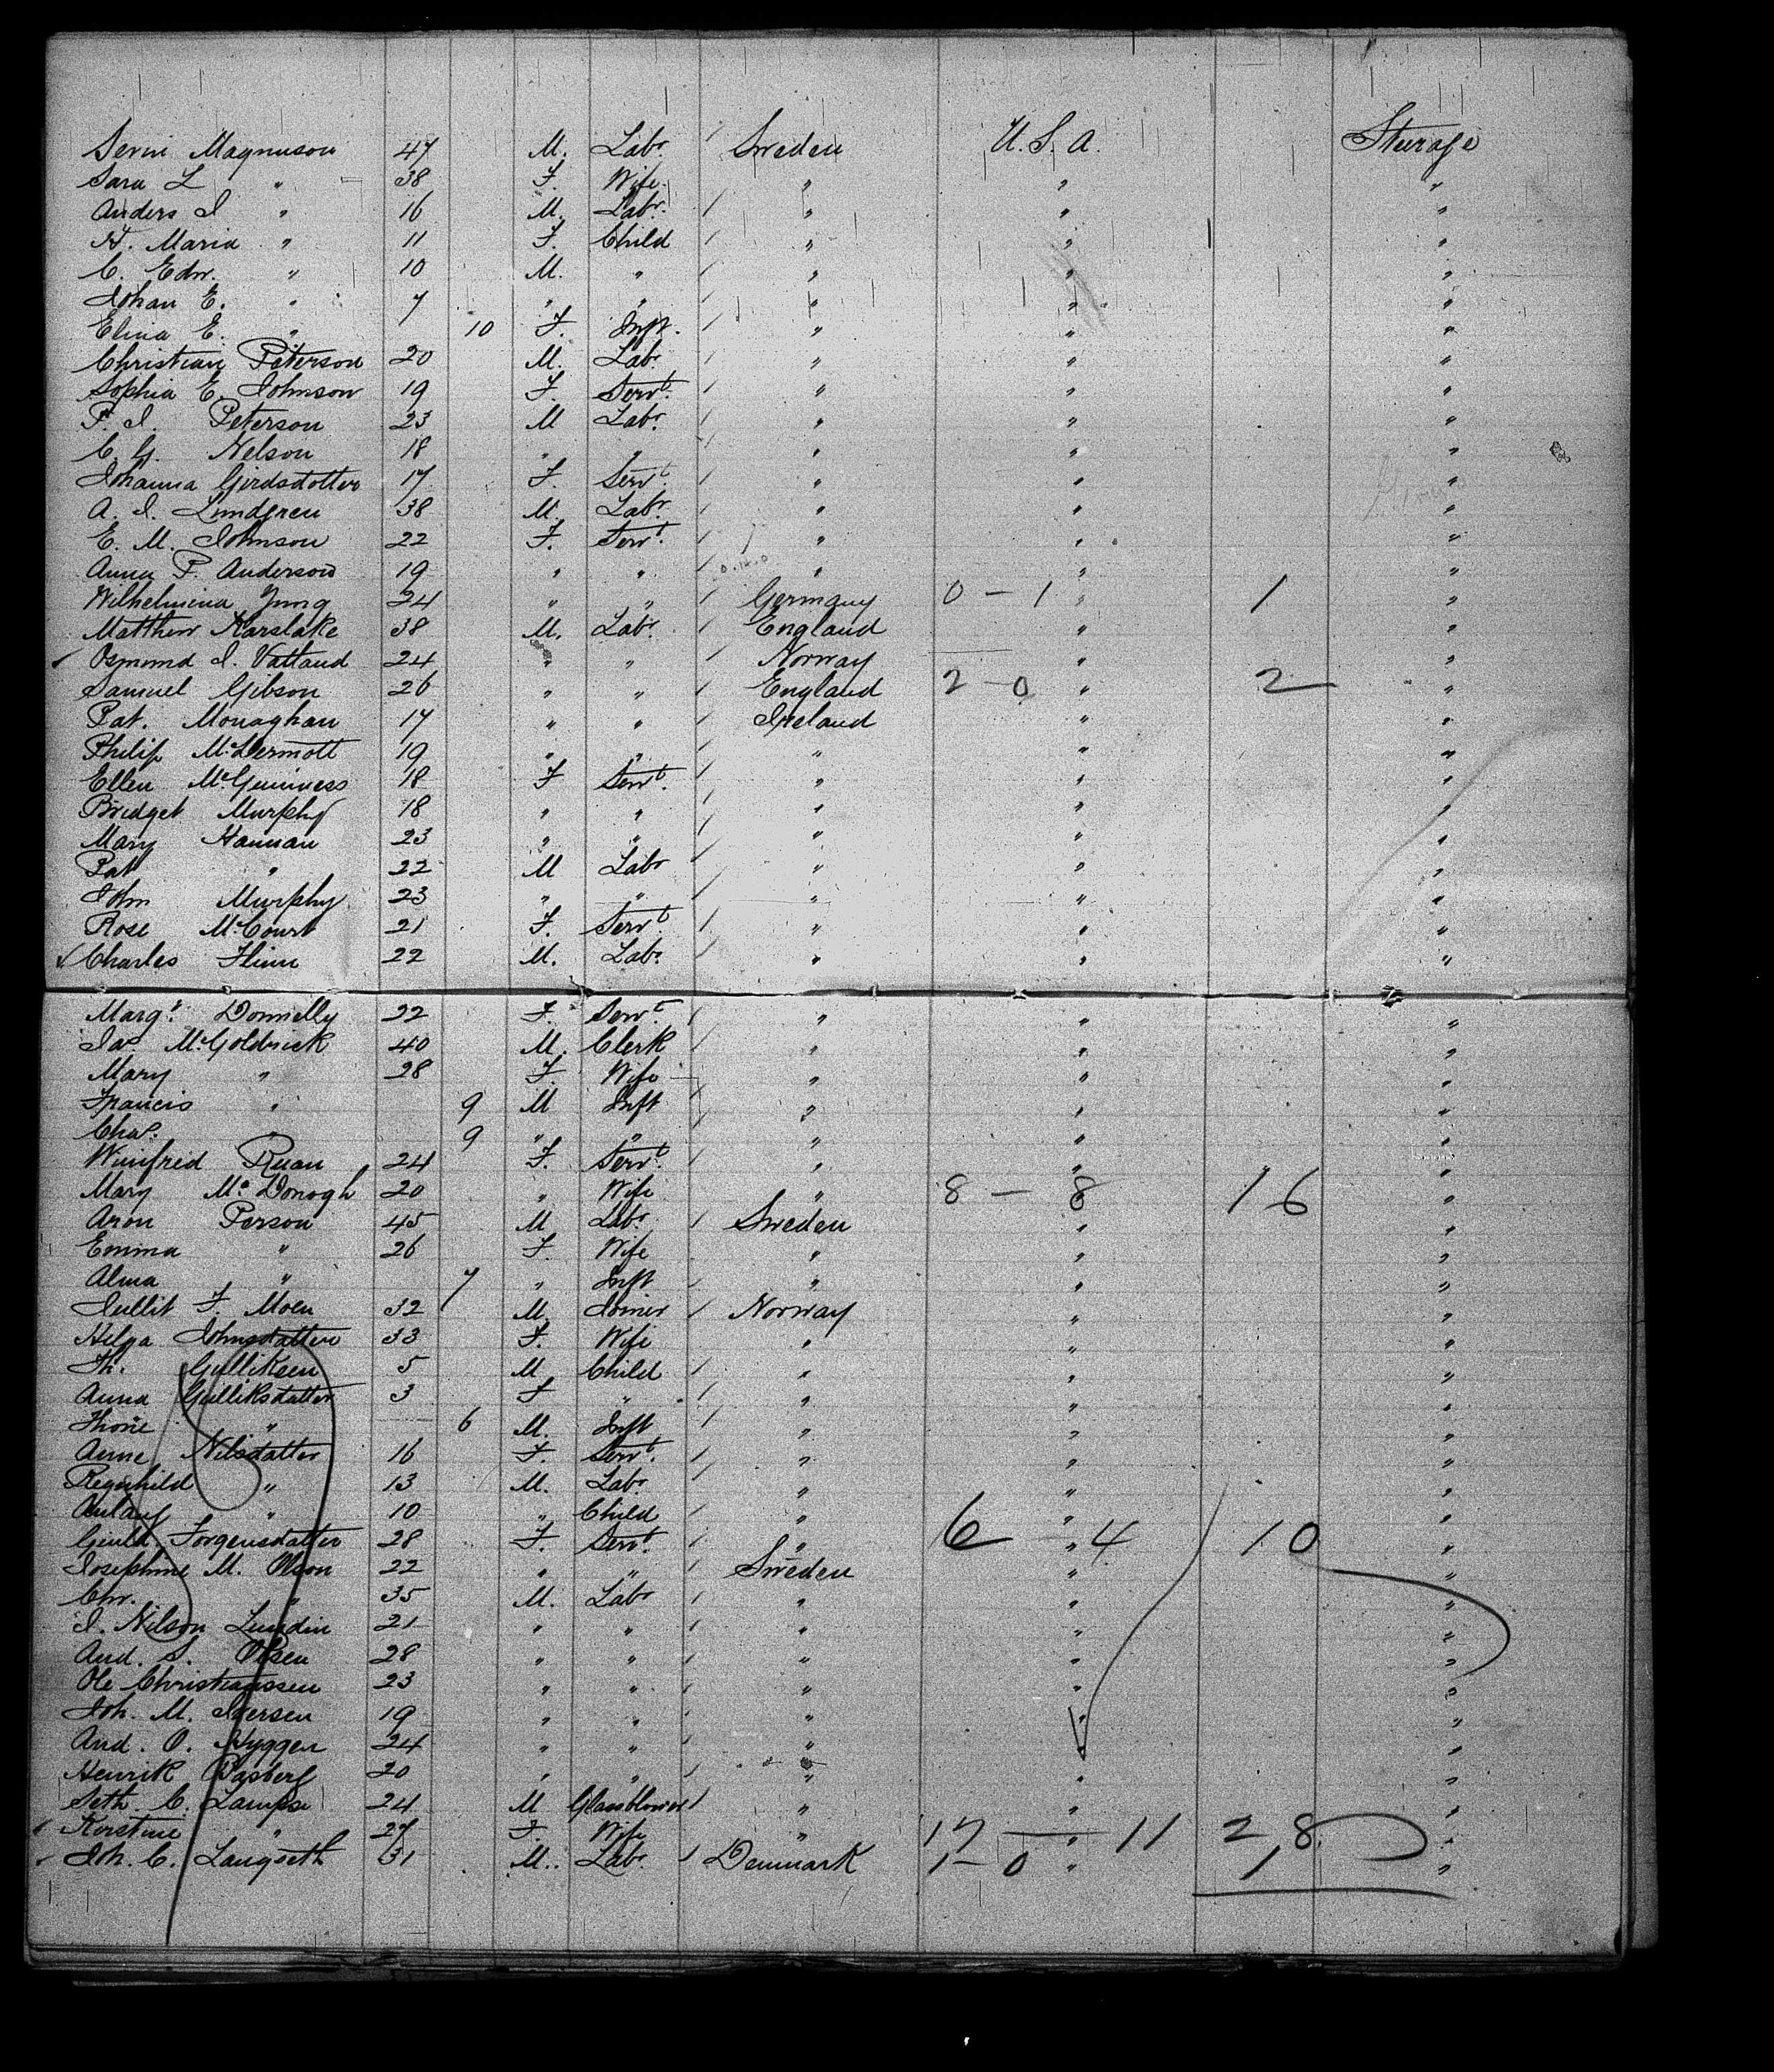 Servi Magnuson 47 M. Labr. Sweden U.S.A. Steerage
Sara L " 38 F. Wife " " "
Anders J " 16 M. Labr. " " "
H. Maria " 11 F. Child " " "
C. Edw. " 10 M. " " " "
Johan E. " 7 " " " " "
Elina E. " 10 F. Inft. " " "
Christian Peterson 20 M. Labr. " " "
Sophia E. Johnson 19 F. Servt. " " "
P. J. Peterson 23 M Labr. " " "
C. G. Nelson 18 " " " " "
Johanna Girdsdotter 17 F. Servt. " " "
A. J. Lundgren 38 M. Labr. " " "
E. M. Johnson 22 F. Servt. " " "
Anna P. Anderson 19 " " " " "
Wilhelmina Jung 24 " " Germany 0 - 1 " 1 "
Matthew Karslake 38 M. Labr. England " "
Osmond J. Vatland 24 " " Norway " "
Samuel Gibson 26 " " England 2 - 0 " 2 "
Pat. Monaghan 17 " " Ireland " "
Philip McDermott 19 " " " " "
Ellen McGuinness 18 F Servt. " " "
Bridget Murphy 18 " " " " "
Mary Hannan 23 " " " " "
Pat " 22 M Labr " " "
John Murphy 23 " " " " "
Rose McCourt 21 F. Servt. " " "
Charles Flinn 22 M. Labr. " " "
Margt. Donnelly 22 F. Servt. " " "
Jas McGoldrick 40 M. Clerk " " "
Mary " 28 F. Wife " " "
Francis " 9 M Inft " " "
Chas. " 9 " " " " "
Winifred Ruan 24 F. Servt. " " "
Mary McDonogh 20 " Wife " 8 - 8 " 16 "
Aron Person 45 M Labr. Sweden " "
Emma " 26 F. Wife " " "
Alma " 7 " Inft " " "
F. Moen 32 M. Joiner Norway " "
Helga Johnsdatter 33 F. Wife " " "
Th. Gulliksen 5 M Child " " "
Anna Gulliksdatter 3 F " " " "
" 6 M. Inft " " "
Anne Nilsdatter 16 F. Servt. " " "
Regnhild " 13 M. Labr. " " "
" 10 " Child " " "
Gunld. Torgensdatter 28 F. Servt. " 6 - 4 " 10 "
Josephine M. Olson 22 " " Sweden " "
Chr. " 35 M. Labr " " "
J. Nilson Lundin 21 " " " " "
And. S. Olsen 28 " " " " "
Ole Christianssen 23 " " " " "
Joh. M. Iversen 19 " " " " "
And. O. Hyggen 24 " " " " "
Henrik 20 " " " " "
Seth C. Lampe 24 M Glassblower " " "
Kirstine " 27 F. Wife " 17 - 11 " 28 "
Joh. C. Langseth 31 M. Labr. Denmark 1 - 0 " 1 "